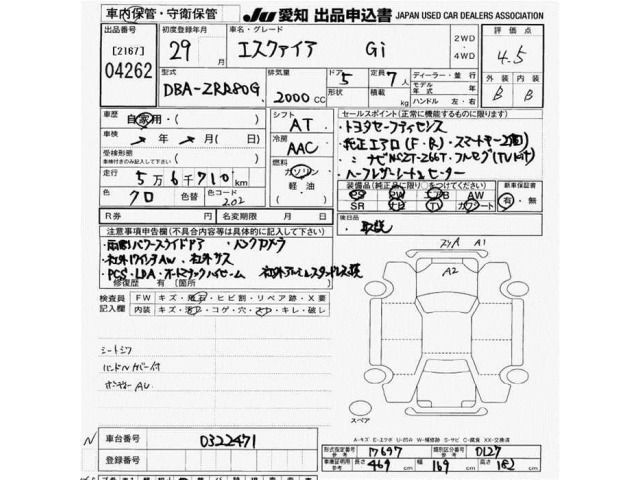 車内保管・守衛保管
JU 愛知 出品申込書 JAPAN USED CAR DEALERS ASSOCIATION
出品番号
[2167]
04262
初度登録年月
29 年 月
車名・グレード
エスクァイア Gi
2WD
・
4WD
評価点
4.5
型式
DBA-ZRR80G
排気量
2000 CC
ドア 5
形状
定員 7 人
積載量 kg
ディーラー・並行
モデル年式 年
ハンドル 左・右
外装 内装
B B
車歴
自家用・( )
車検
年 月( )日
受検形態
車検付きのみ記入して下さい
( )
走行
5万6千710 km
色
クロ
色替
色コード
202
シフト
AT
冷房
AAC
燃料
ガソリン
・
軽油
( )
セールスポイント(正常に機能するものに限ります)
・トヨタセーフティセンス
・純正エアロ(F・R)・スマートキー2(個)
・〃 ナビNSZT-Z66T・フルセグ(TV付)
・ハーフレザーシート&ヒーター
装備品(純正品に限り○をつけてください)
PS PW ABS AW
SR ナビ TV カワシート
新車保証書
有・無
R券 ¥ 名変期限 月 日
後日品
取説
注意事項申告欄(不具合箇所等は具体的に記入して下さい)
・両側パワースライドドア ・バックカメラ
・社外17インチAW、社外サス
・PCS・LDA・オートマチックハイビーム 社外アルミスタッドレス積
修復歴 有 (箇所 )
検査員記入欄
FW キズ・飛石・ヒビ割・リペア跡・X要
内装 キズ・汚レ・コゲ・穴・スレ・キレ・破レ
シートシワ
ハンドルカバー付
スリA A1
A2
スペア
A-キズ E-エクボ U-凹み W-補修跡 S-サビ C-腐食 XX-交換済
車台番号
0322471
登録番号
形式指定番号 参考 17697
類別区分番号 参考 0127
車庫証明用 参考 長さ 469 cm 幅 169 cm 高さ 182 cm